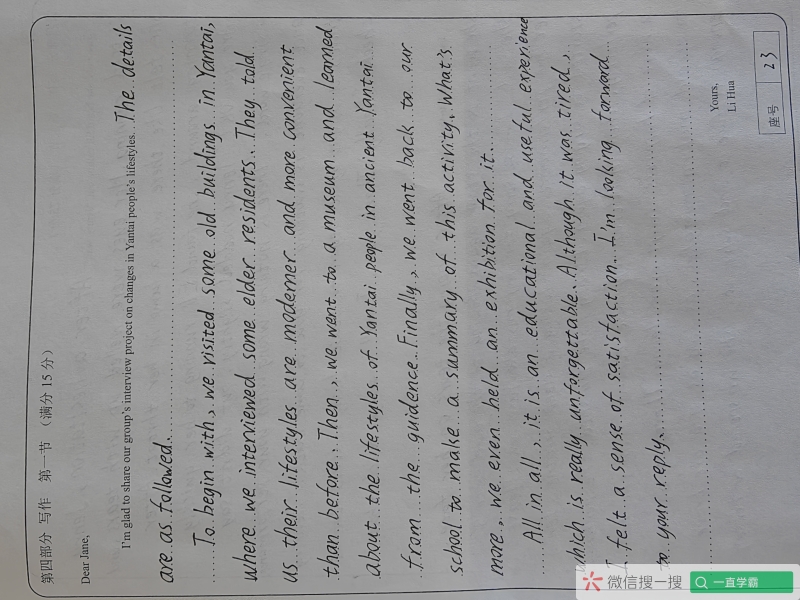 第四部分 写作 第一节 （满分 15 分）
Dear Jane,
I'm glad to share our group's interview project on changes in Yantai people's lifestyles. The details
are as followed.
To begin with, we visited some old buildings in Yantai,
where we interviewed some elder residents. They told
us their lifestyles are moderner and more convenient
than before. Then, we went to a museum and learned
about the lifestyles of Yantai people in ancient Yantai
from the guidence. Finally, we went back to our
school to make a summary of this activity. What's
more, we even held an exhibition for it.
All in all, it is an educational and useful experience
which is really unforgettable. Although it was tired,
I felt a sense of satisfaction. I'm looking forward
to your reply.
Yours,
Li Hua
座号 23
微信搜一搜
一直学霸